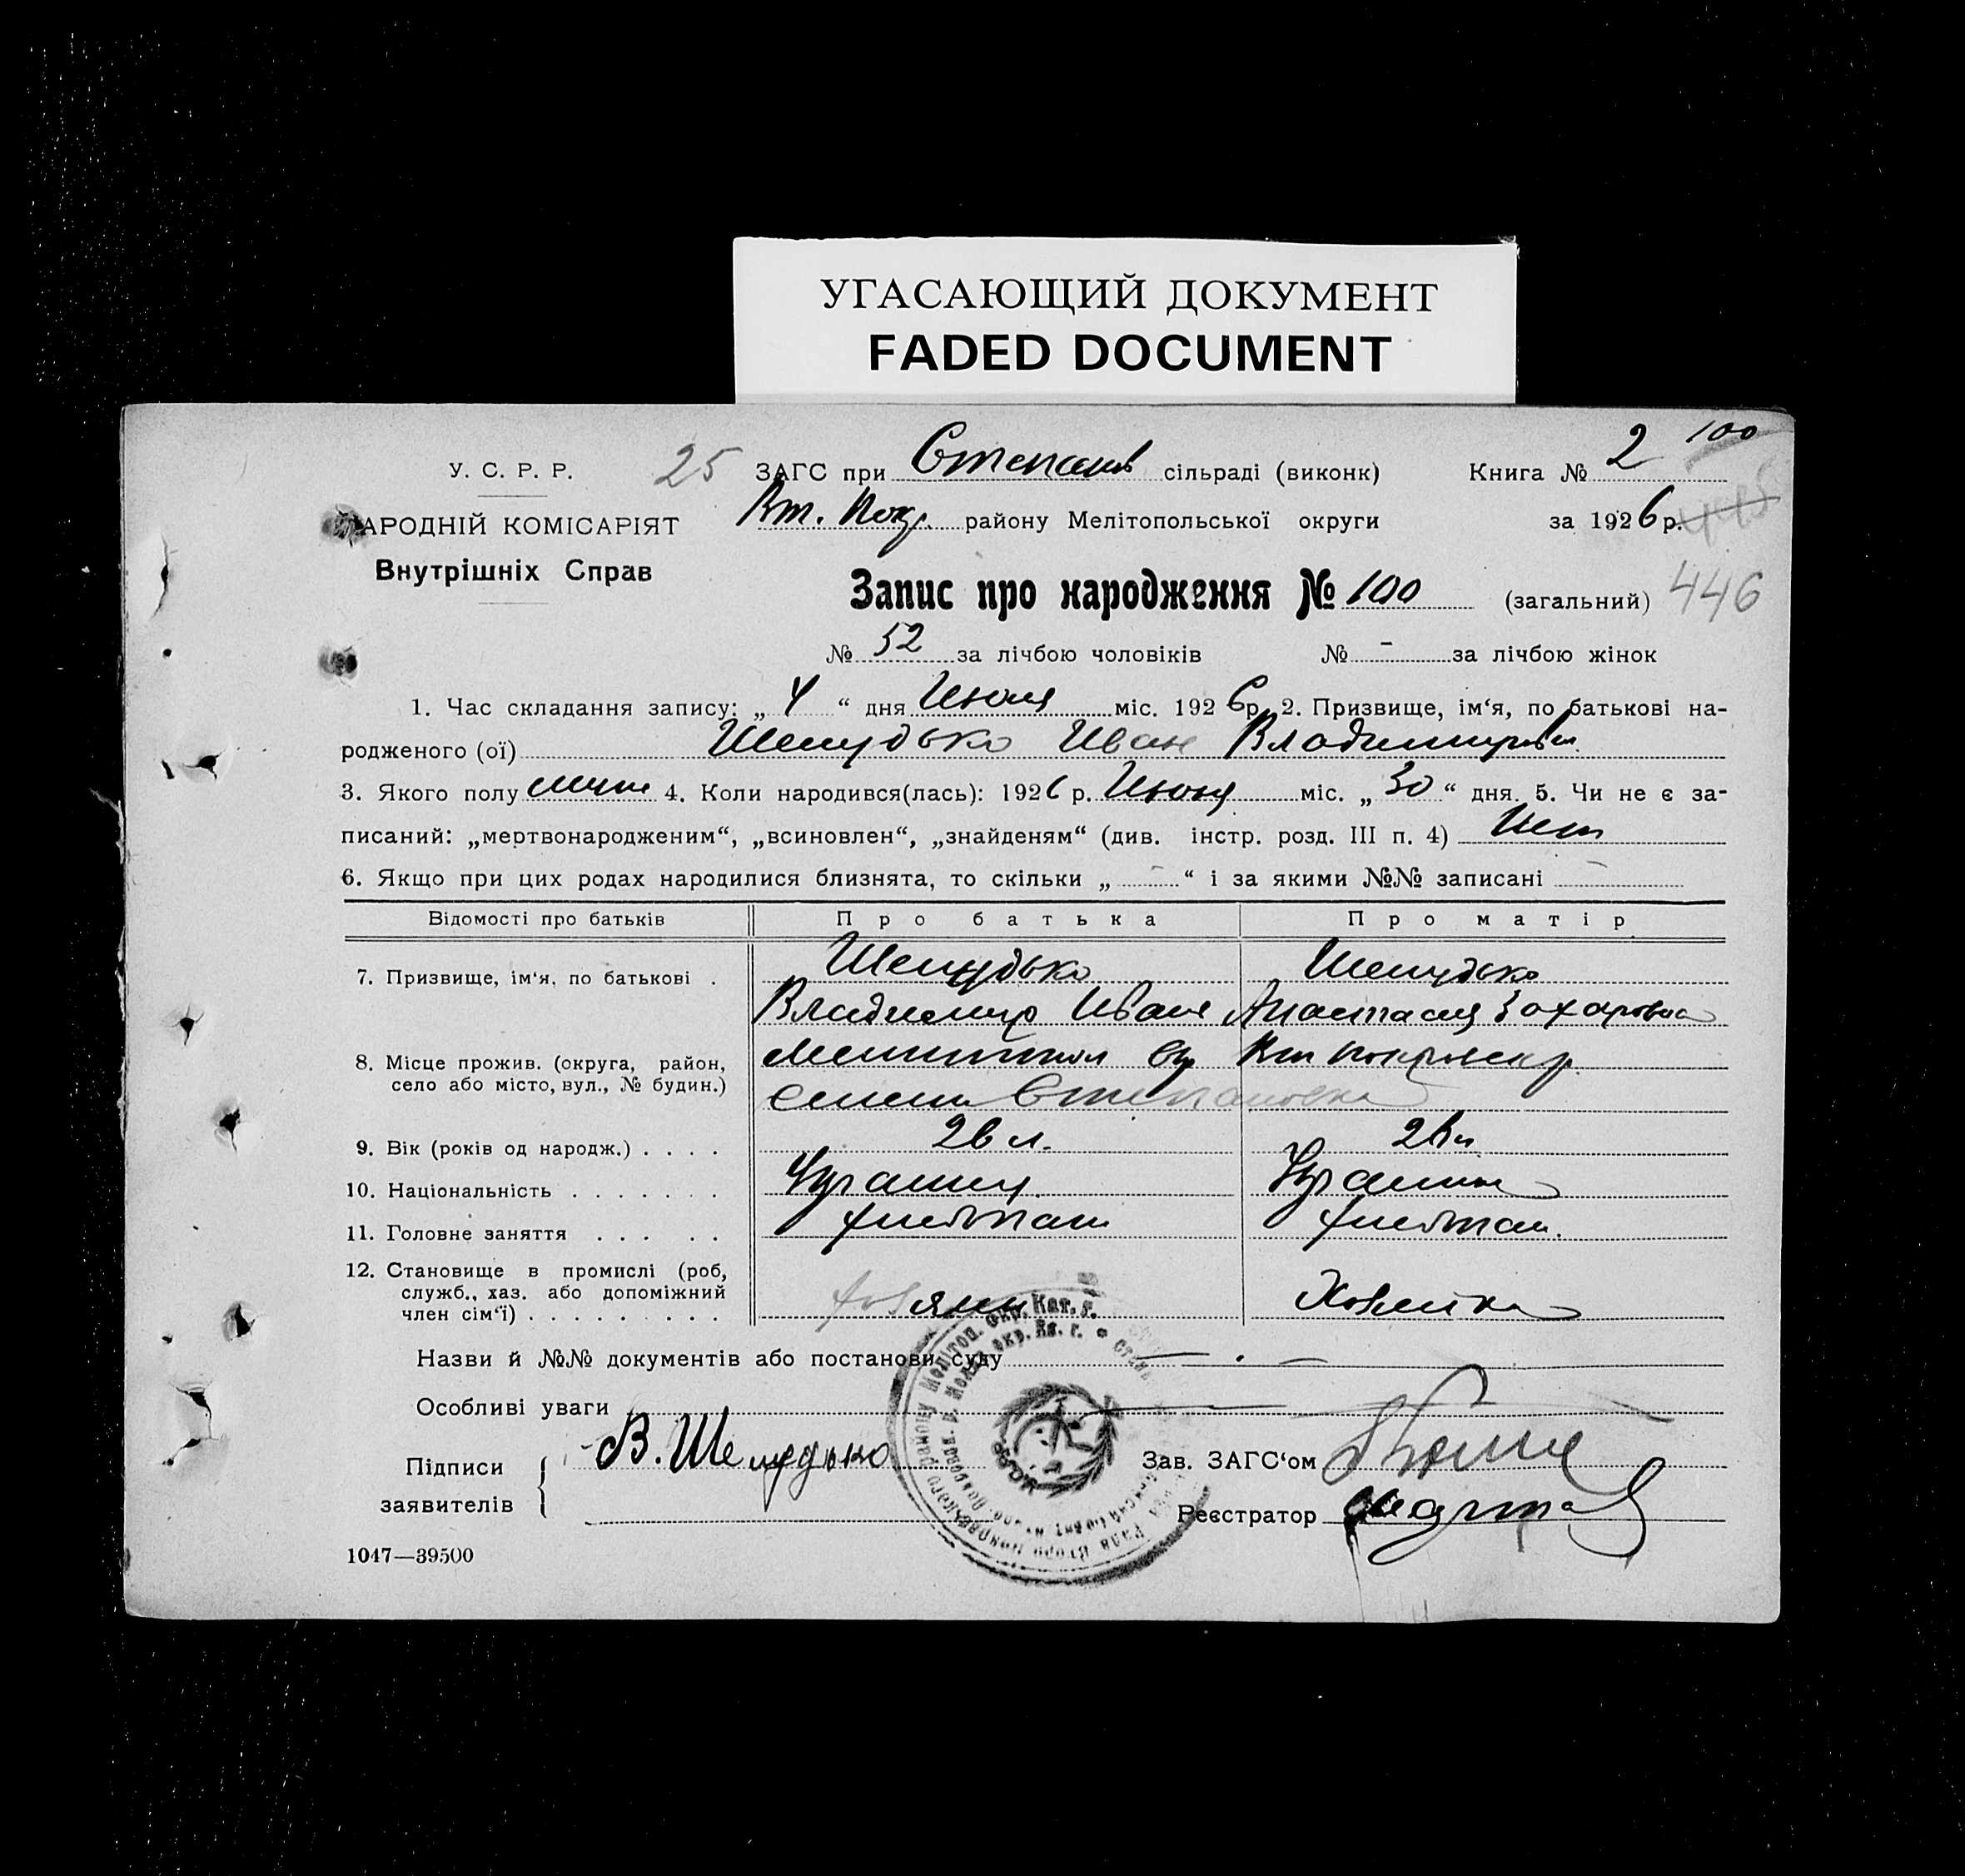 УГАСАЮЩИЙ ДОКУМЕНТ
FADED DOCUMENT
100
У. С. Р. Р. 25 ЗАГС при Степанів сільраді (виконк) Книга № 2
АРОДНІЙ КОМІСАРІЯТ Вт. Покр. району Мелітопольської округи за 1926 р.
Внутрішніх Справ
Запис про народження № 100 (загальний) 446
№ 52 за лічбою чоловіків № - за лічбою жінок
1. Час складання запису: „ 4 “ дня Июля міс. 1926 р. 2. Призвище, ім‘я, по батькові на-
родженого (ої) Шелудько Иван Владимиров
3. Якого полу муж 4. Коли народився(лась): 1926 р. Июня міс. „ 30 “ дня. 5. Чи не є за-
писаний: „мертвонародженим“, „всиновлен“, „знайденям“ (див. інстр. розд. III п. 4) Нет
6. Якщо при цих родах народилися близнята, то скільки „ - “ і за якими №№ записані -
Відомості про батьків Про батька Про матір
7. Призвище, ім‘я, по батькові . Шелудько Шелудько
Владимир Иван Анастасия Захаровна
8. Місце прожив. (округа, район, Мелитопол Вт Покровск р.
село або місто, вул., № будин.) Степановка
9. Вік (років од народж.) . . . . 26 л. 26 л
10. Національність . . . . . . .
11. Головне заняття . . . . . хлебопаш хлебопаш.
12. Становище в промислі (роб,
служб., хаз. або допоміжний
член сім‘ї) . . . . . . . . . Хозяин Хозяйка
Назви й №№ документів або постанови суду
Особливі уваги
Підписи В. Шелудько Зав. ЗАГС‘ом
заявителів
Реєстратор
1047—39500